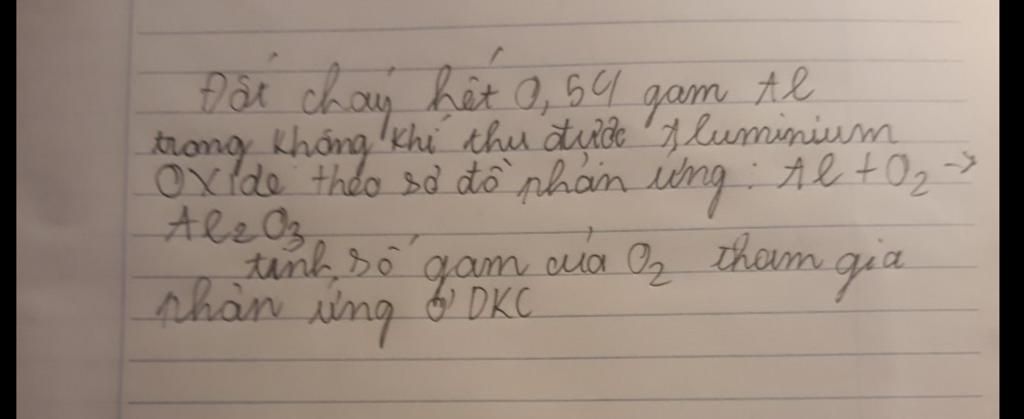 Đốt cháy hết 0,54 gam Al
trong không khí thu được Aluminium
OXide theo sơ đồ phản ứng: Al + O₂ →
Al₂O₃
tính số gam của O₂ tham gia
phản ứng ở ĐKC